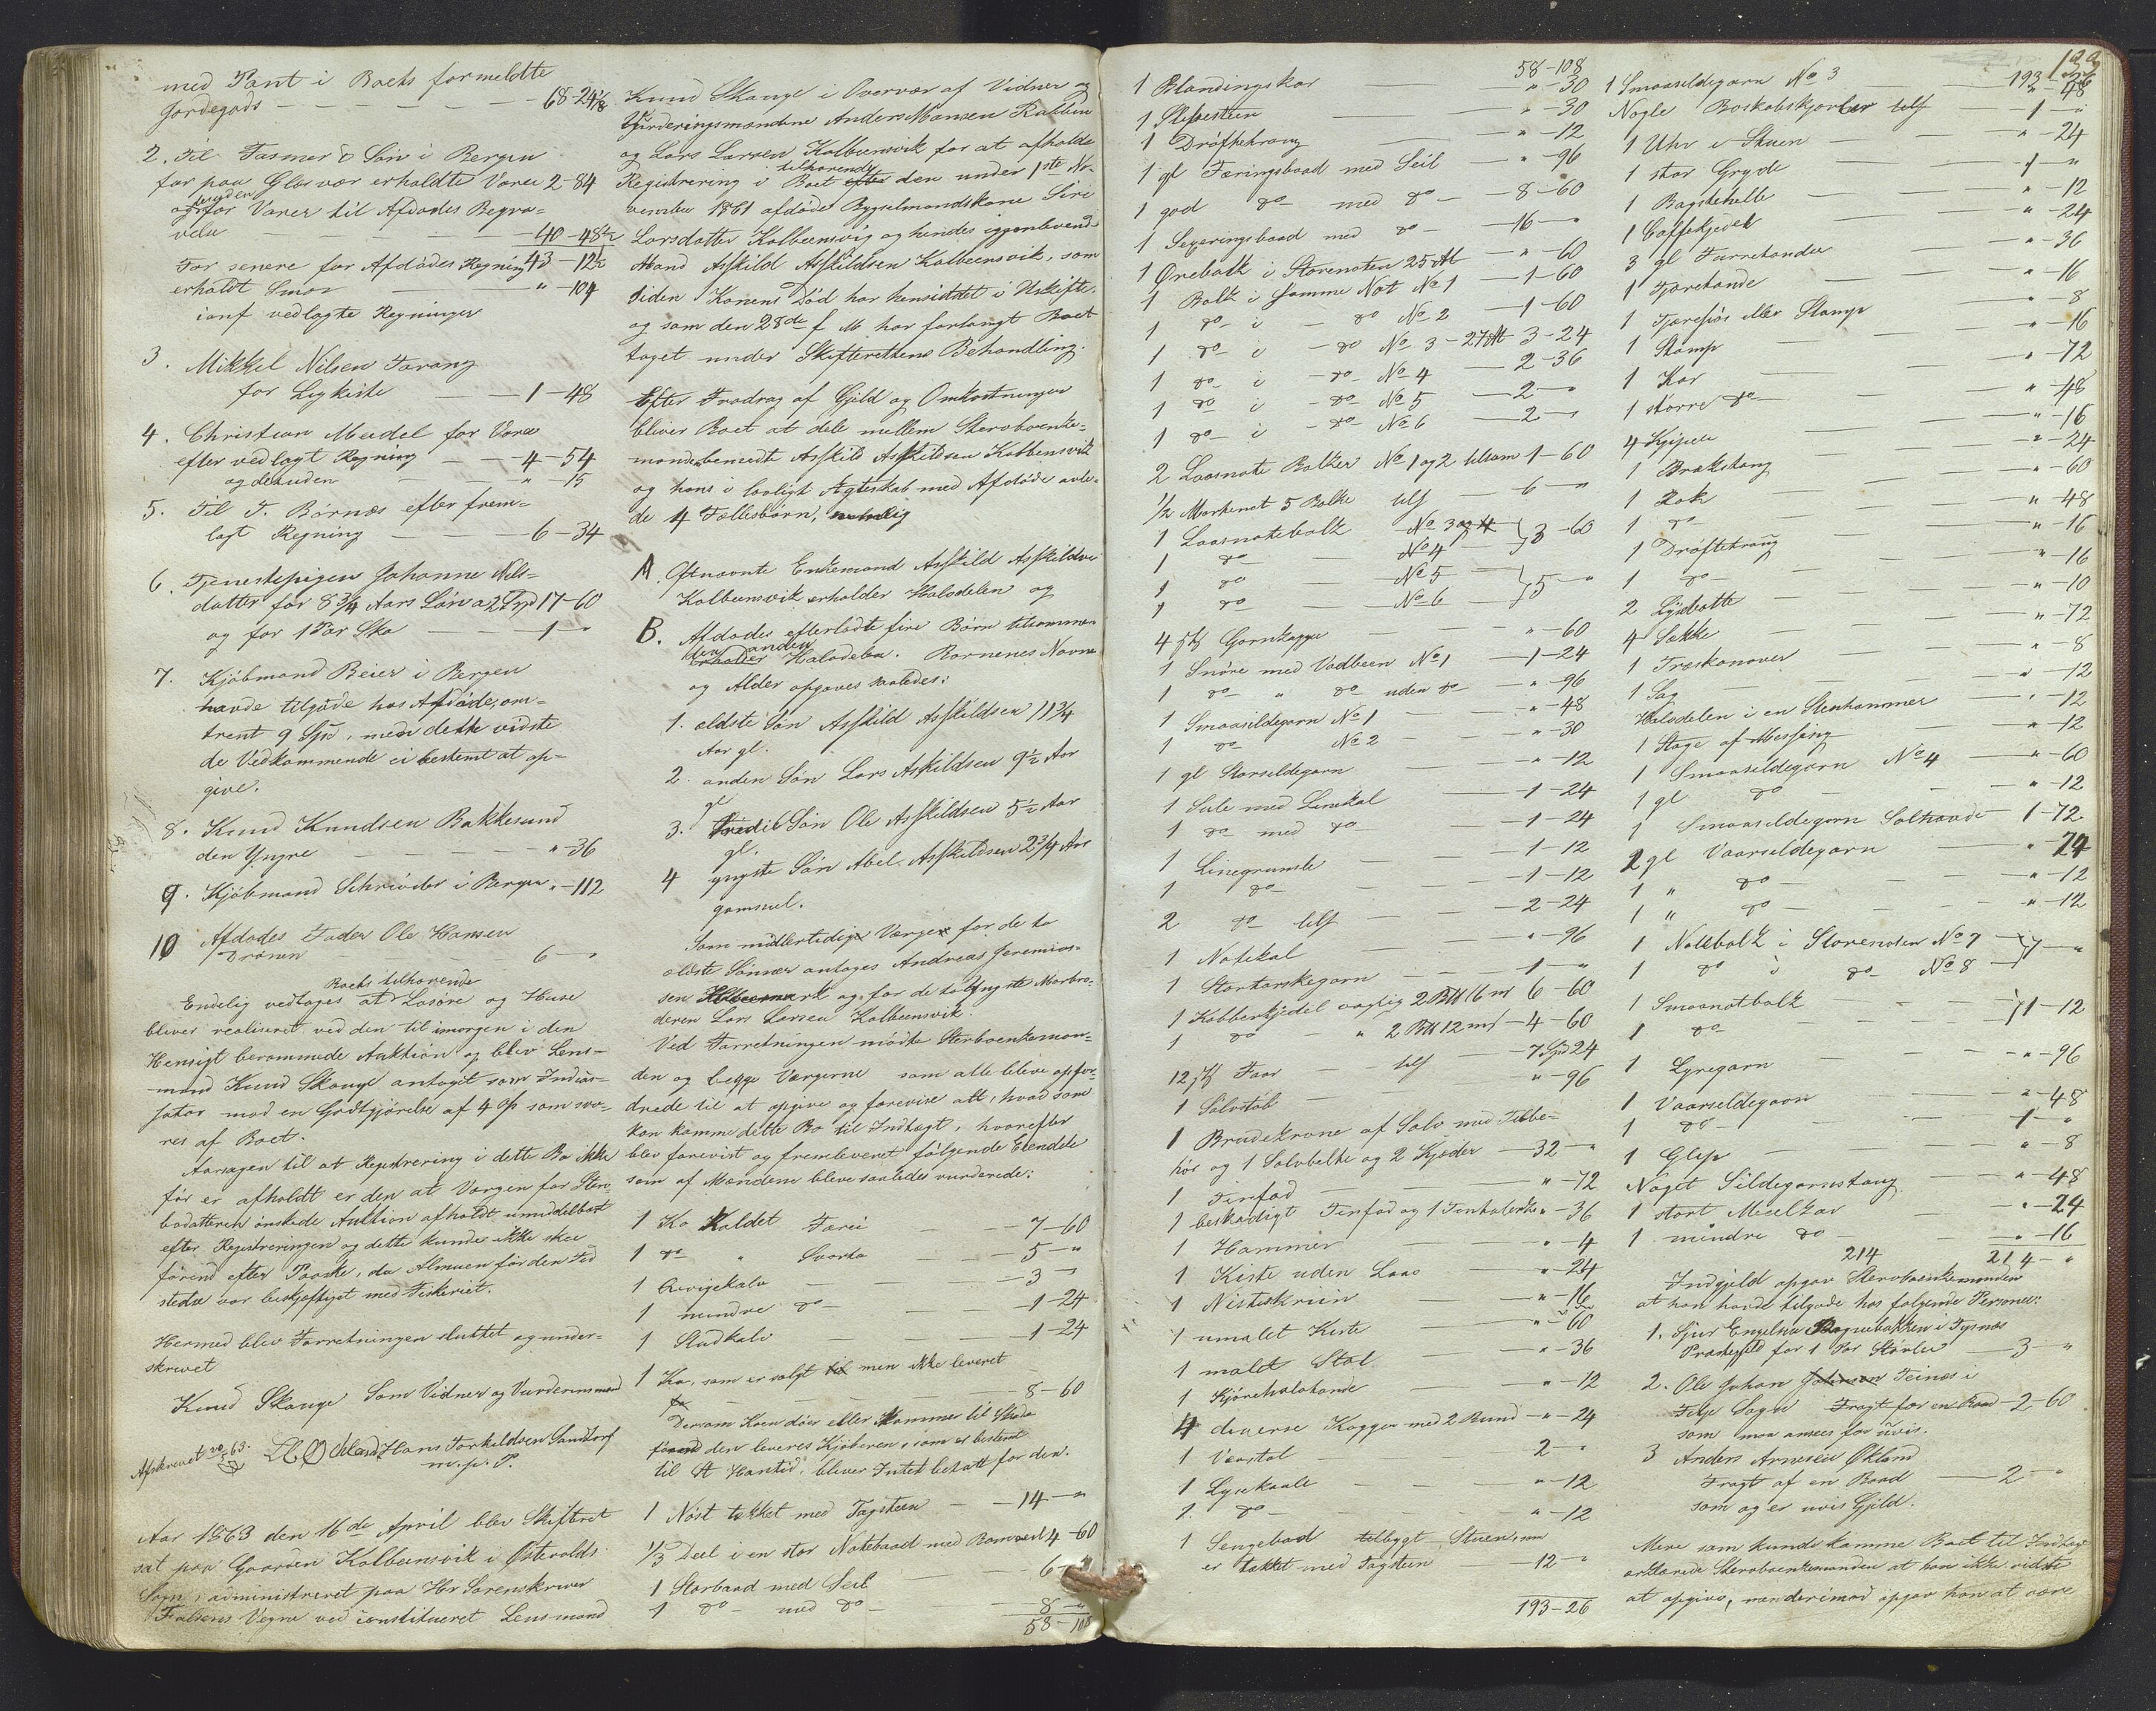 med Pant i Boets formeldte
Jordegods — 68-24 1/8
2. Til Fasmer & Søn i Bergen
for paa Glesvær erholdte Varer 2-84
og desuden for Varer til Afdødes Begra-
velse — 40-48 1/2
For senere for Afdødes Regning 43-12 1/2
erholdt Smør — " -104
jonf vedlagte Regninger
3. Mikkel Nilsen Torang
for Ligkiste — 1-48
4. Christian Meidel for Varer
efter vedlagt Regning — 4-54
og desuden — " -15
5. Til T. Børnæs efter frem-
lagt Regning — 6-34
6. Tjenestepigen Johanne Nils-
datter for 8 3/4 Aars Løn a 2 Spd 17-60
og for 1 Par Sko — 1 - "
7. Kjøbmand Beier i Bergen
havde tilgode hos Afdøde, om-
trent 9 Spd, men dette vidste
de Vedkommende ei bestemt at op-
give.
8. Knud Knudsen Bakkesund
den Yngre — " -36
9. Kjøbmand Schrøder i Bergen " -112
10 Afdødes Fader Ole Hansen
Drønen — 6 - "
Endelig vedtoges at Boets tilhørende Løsøre og Huse
bliver realiseret ved den til imorgen i den
Hensigt berammede Auktion og blev Lens-
mand Knud Skauge antaget som Indcas-
sator mod en Godtgjørelse af 4 % som sva-
res af Boet.
Aarsagen til at Registrering i dette Bo ikke
før er afholdt er den at Værgen for Ster-
bodatteren ønskede Auktion afholdt umiddelbart
efter Registreringen og dette kunde ikke skee
førend efter Paaske, da Almuen før den Tid
stedse var beskjæftiget med Fiskeriet.
Hermed blev Forretningen sluttet og under-
skrevet
Knud Skauge Som Vidner og Vurderinsmænd
Afskrevet 20/5 63. Hans Torkildsen Sandtorf
m. p. P.
Aar 1863 den 16de April blev Skifteret
sat paa Gaarden Kolbeensvik i Østevolds
Sogn, administreret paa Hr Sorenskriver
Falsens Vegne ved constitueret Lensmand
Knud Skauge i Overvær af Vidner og
Vurderingsmændene Anders Monsen Rabben
og Lars Larsen Kolbeensvik for at afholde
Registrering i Boet tilhørende efter den under 1ste No-
vember 1861 afdøde Bygselmandskone Siri
Larsdatter Kolbeensvig og hendes igjenlevende
Mand Askild Askildsen Kolbeensvik, som
siden Konens Død har hensiddet i Uskifte,
og som den 28de f M har forlangt Boet
taget under Skifterettens Behandling.
Efter Fradrag af Gjeld og Omkostninger
bliver Boet at dele mellem Sterboenke-
manden bemeldte Askild Askildsen Kolbensvik
og hans i lovligt Ægteskab med Afdøde avle-
de 4 Fællesbørn, nemlig
A. Oftnævnte Enkemand Askild Askildsen
Kolbeensvik erholder Halvdelen og
B. Afdødes efterladte fire Børn tilsammen
erholder den anden Halvdelen. Børnenes Navne
og Alder opgaves saaledes:
1. ældste Søn Askild Askildsen 11 3/4
Aar gl.
2. anden Søn Lars Askildsen 9 1/2 Aar
gl
3. Tredie Søn Ole Askildsen 5 1/2 Aar
gl.
4 yngste Søn Abel Askildsen 2 3/4 Aar
gammel.
Som midlertidige Værger for de to
ældste Sønner antoges Andreas Jeremias-
sen og for de to yngste Morbro-
deren Lars Larsen Kolbeensvik.
Ved Forretningen mødte Sterboenkeman-
den og begge Værgerne som alle bleve opfor-
drede til at opgive og forevise alt, hvad som
kan komme dette Bo til Indtægt, hvorefter
blev forevist og fremleveret følgende Eiendele
som af Mændene bleve saaledes vurderede:
1 Ko Kaldet Færei — 7-60
1 do " Svarta — 5 - "
1 Qvigekalv — 3 - "
1 mindre do — 1-24
1 Studkalv — 1-24
1 Ko, som er solgt til men ikke leveret
for — 8-60
Dersom Koen døer eller kommer til Skade
førend den leveres Kjøberen, som er bestemt
til St Hanstid, bliver Intet betalt for den.
1 Nøst tækket med Tagsteen — 14 - "
1/3 Deel i en stor Notebaad med 4-60
1 Storbaad med Seil — 6 - "
1 do — med do — 8 - "
58-108
58-108
1 Blandingskar — " -30
1 Slibesteen — " -30
1 Drøftetraug — " -12
1 gl Færingsbaad med Seil — " -96
1 god do med do — 8-60
1 Sexæringsbaad med do — 16 - "
1 Ørebolk i Storenoten 25 Al — " -60
1 Bolk i samme Not No 1 — 1-60
1 do i — do No 2 — 1-60
1 do i — do No 3 - 27 Al 3-24
1 do i — do No 4 — 2-36
1 do i — do No 5 — 2 - "
1 do i — do No 6 — 2 - "
2 Laasnote Bolker No 1 og 2 tilsam 1-60
1/2 Morkenot 5 Bolke tils — 6 - "
1 Laasnotebolk No 3 og 4 } 3-60
1 do — No 4
1 do — No 5 } 5 - "
1 do — No 6
4 stk Garnkagger — " -60
1 Snøre med Vadbeen No 1 — 1-24
1 do " do uden do — " -96
1 Smaasildegarn No 1 — " -48
1 do No 2 — " -30
1 gl Storsildegarn — " -12
1 Sule med Linekal — 1-24
1 do med do — 1-24
1 Linegrunsle — 1-12
1 do — 1-12
2 do tils — 2-24
1 Notekal — " -96
1 Stortorskegarn — 1 - "
1 Kobberkjedel vægtig 2 B 16 m 6-60
1 do " 2 B 12 m — 4-60
12 stk Faar tils — 7 Spd 24
1 Sølvstob — " -96
1 Brudekrone af Sølv med Tilbe-
hør og 1 Sølvbelte og 2 Kjæder — 32 - "
1 Tinfad — " -72
1 beskadigt Tinfad og 1 Tintalerken " -36
1 Hammer — " -4
1 Kiste uden Laas — " -24
1 Nisteskriin — " -16
1 umalet Kiste — " -60
1 malet Stol — " -36
1 Kjørehalstønde — " -12
4 diverse Kagger med 2 Bund — " -24
1 Vævstol — 2 - "
1 Lysekaale — " -12
1. do — " -12
1 Sengebod tilbygt Stuen, som
er tækket med Tagsteen — 12 - "
193-26
193-26
1 Smaasildegarn No 3 — " -48
Nogle Boskabskjørler tils — 1 - "
1 Uhr i Stuen — " -24
1 stor Gryde — 1 - "
1 Bagstehelle — " -12
1 Caffekjedel — " -24
3 gl Furretønder — " -36
1 Tjæretønde — " -16
1 Tjæresiøs eller Stamp — " -8
1 Stamp — " -16
1 Kar — " -72
1 større do — " -48
4 Kjiper — " -16
1 Brækstang — " -24
1 Rok — " -60
1 do — " -48
1 Drøftetraug — " -16
1 do — " -16
2 Lyssbøtte — " -10
4 Sække — " -72
1 Træskonaver — " -8
1 Sag — " -12
Halvdelen i en Steenhammer — " -12
1 Stage af Messing — " -12
1 Smaasildegarn No 4 — " -60
1 gl do — " -12
1 Smaasildegarn Solhavde 1-72
2 gl Vaarsildegarn — " -24
1 " do — " -12
1 " do — " -12
1 Notebolk i Storenoten No 7 } 7 - "
1 do i do No 8
1 Smaanotbolk } 1-12
1 do
1 Lyregarn — " -96
1 Vaarsildegarn — " -48
1 do — 1 - "
1 Glip — " -8
Noget Sildegarnstaug — " -48
1 stort Meelkar — " -24
1 mindre do — " -16
214 214 - "
Indgjeld opgav Sterboenkemanden
at han havde tilgode hos følgende Personer:
1. Sjur Engelsen i Tysnæs
Præstegjeld for 1 Par Støvler — 3 - "
2. Ole Johan Johnson Teinæs i
Fitje Sogn Fragt for en Baad — 2-60
som maa ansees for uvis.
3 Anders Arnesen Økland
Fragt af en Baad — 2 - "
som og er uvis Gjeld.
Mere som kunde komme Boet til Indtægt
erklærede Sterboenkemanden at han ikke vidste
at opgive, men derimod opgav han at være